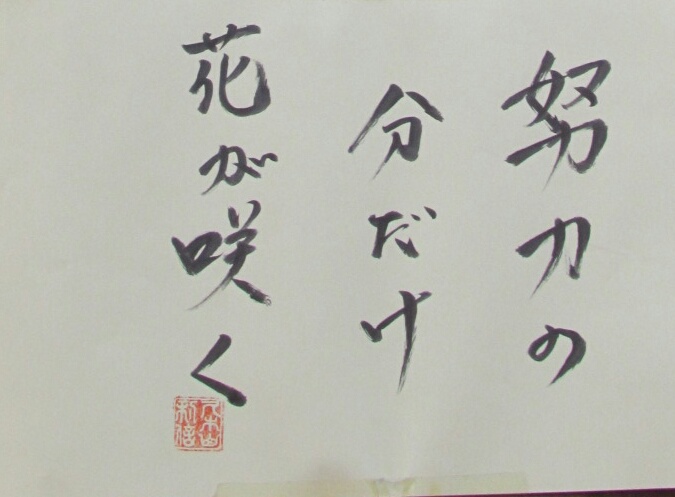 努力の
分だけ
花が咲く